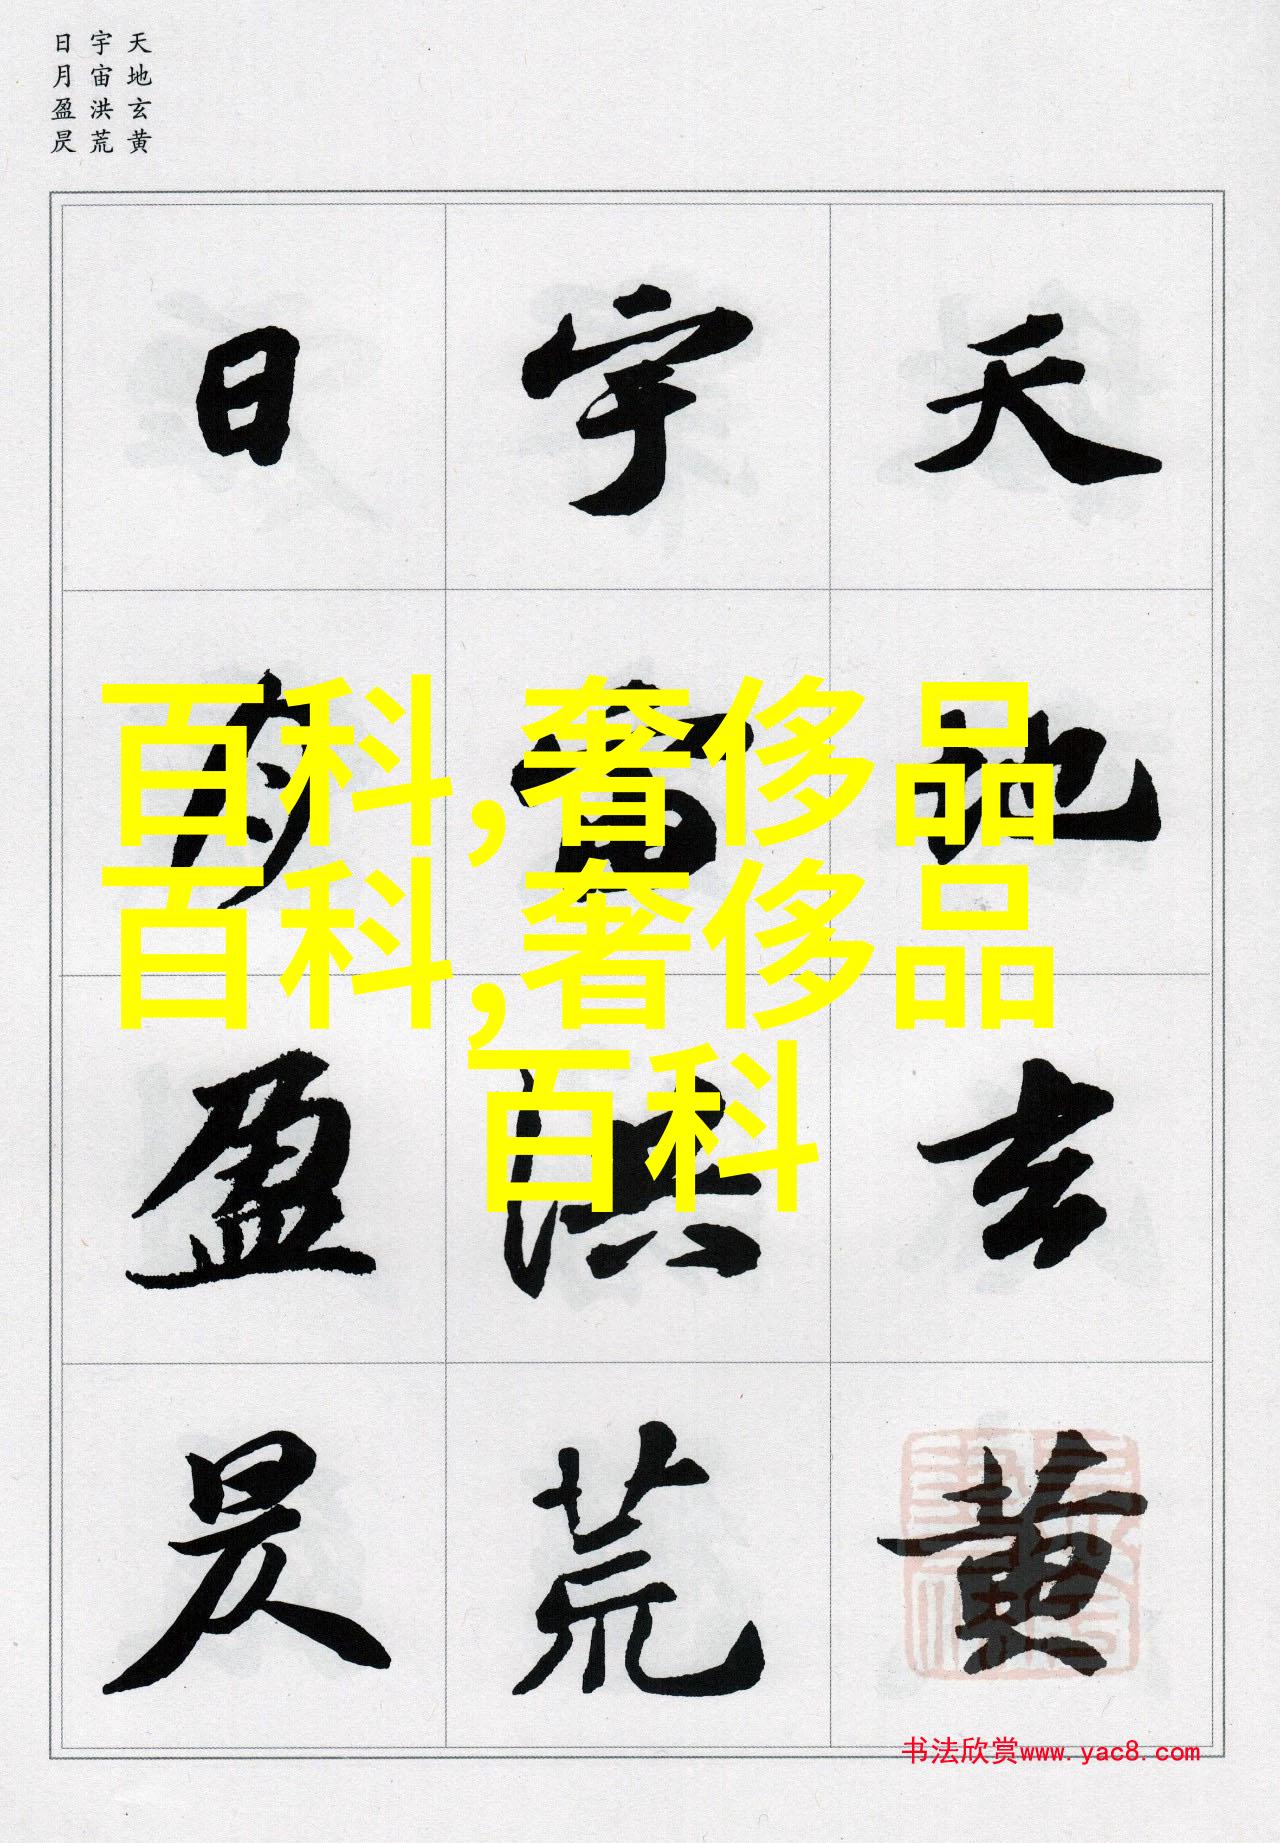 天地玄黄
宇宙洪荒
日月盈昃
天地玄黄
宇宙洪荒
日月盈昃
百科,奢侈品
百科,奢侈品
百科
书法欣赏www.yac8.com